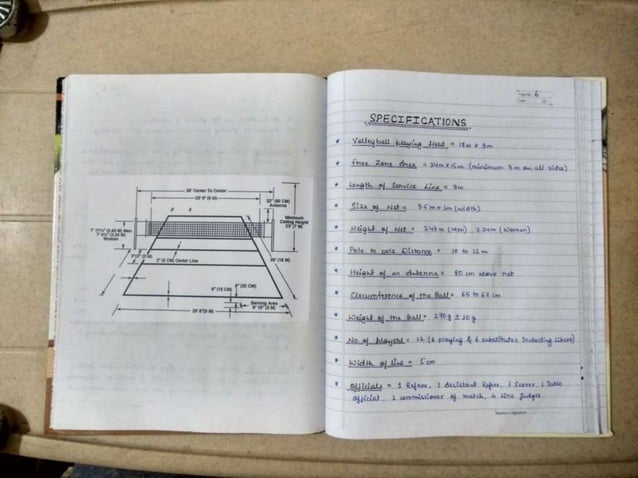 36' Center To Center
29' 6" (9 M)
32" (80 CM)
Antenna
Minimum
Ceiling Height
23' (7 M)
7' 11⅝" (2.43 M) Men
7' 4⅛" (2.24 M)
Women
2" (5 CM) Center Line
59' (18 M)
6" (15 CM)
Serving Area
9' 10" (3 M)
29' 6"(9 M)
Page No. 6
Date
SPECIFICATIONS
* Volleyball playing field = 18m x 9m
* Free Zone Area = 24m X 15m (minimum 3m on all sides)
* Length of Service Line = 9m
* Size of Net = 9.5m x 1m (width)
* Height of Net = 2.43m (Men), 2.24m (Women)
* Pole to pole Distance = 10 to 12 m
* Height of an antenna = 80 cm above net
* Circumference of the Ball = 65 to 67 cm
* Weight of the Ball = 270g ± 20g
* No. of players = 12 (6 playing & 6 substitutes Including Libero)
* Width of line = 5cm
* Officials = 1 Refree, 1 Assistant Refree, 1 Scorer, 1 Table
Official, 1 commissioner of match, 4 Line Judges
Teacher's Signature